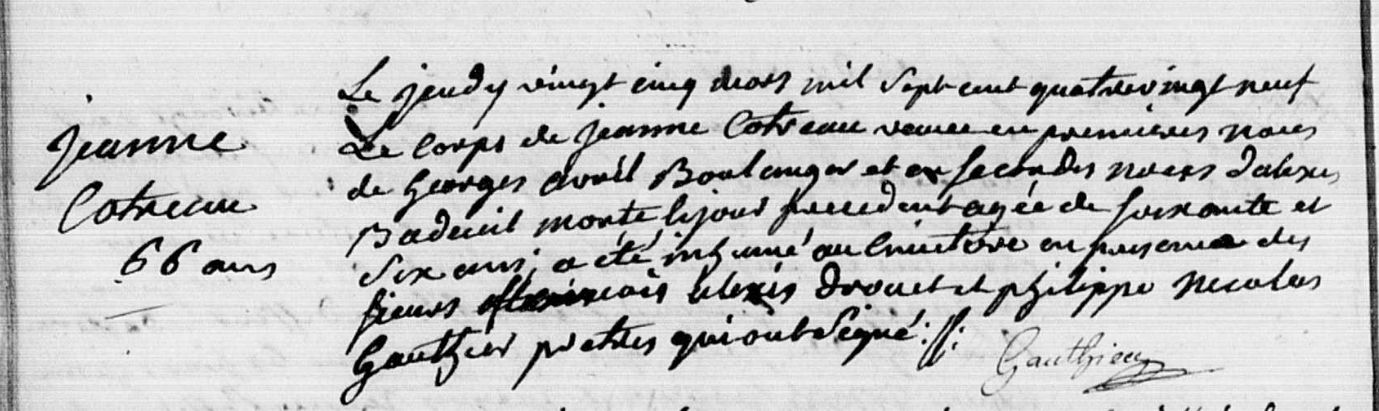 jeanne
Cotreau
66 ans
Le jeudy vingt cinq mars mil sept cent quatrevingt neuf
Le corps de jeanne Cotreau veuve en premieres noces
de georges avril Boulanger et en secondes noces d'alexis
Badeuil morte le jour precedent agée de soixante et
six ans, a été inhumé au cimetière en presence des
sieurs alexis drouet et philippe nicolas
Gauthier pretres qui ont signé ://:
Gauthier